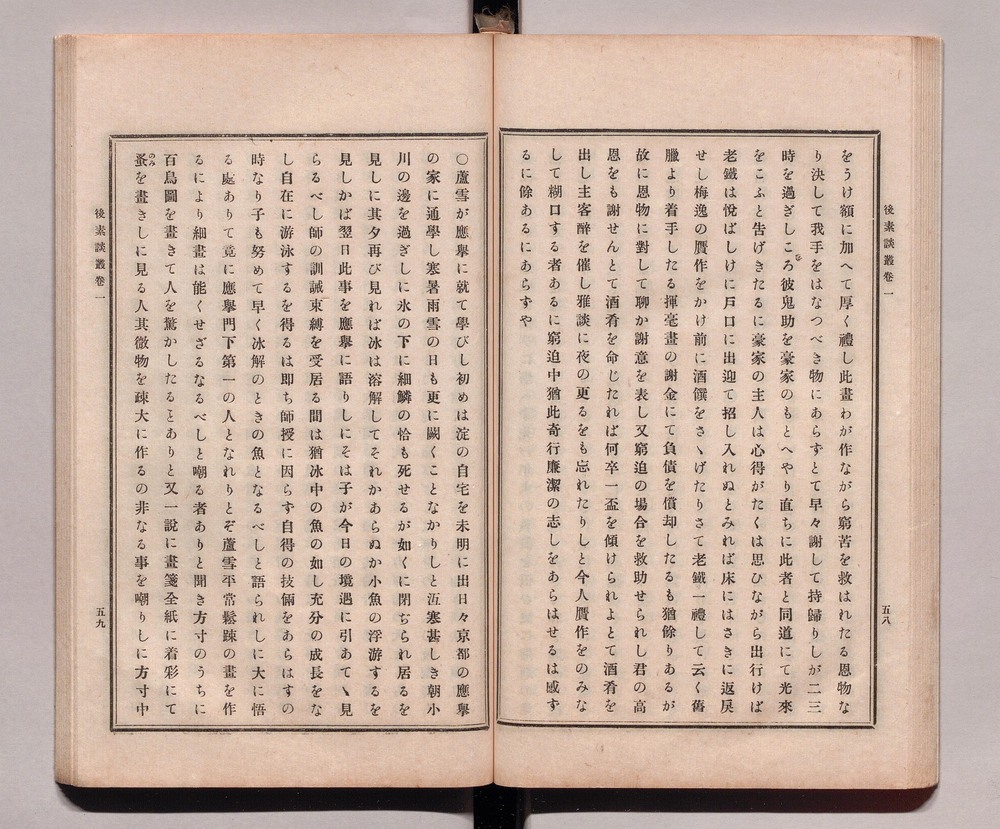 後素談叢卷一
五八
をうけ額に加へて厚く禮し此畫わが作ながら窮苦を救はれたる恩物な
り決して我手をはなつべき物にあらずとて早々謝して持歸りしが二三
時を過ぎしころ彼鬼助を豪家のもとへやり直ちに此者と同道にて光來
をこふと告げきたるに豪家の主人は心得がたくは思ひながら出行けば
老鐵は悅ばしけに戶口に出迎て招し入れぬとみれば床にはさきに返戾
せし梅逸の贋作をかけ前に酒饌をさゝげたりさて老鐵一禮して云く舊
臘より着手したる揮毫畫の謝金にて負債を償却したるも猶餘りあるが
故に恩物に對して聊か謝意を表し又窮迫の場合を救助せられし君の高
恩をも謝せんとて酒肴を命じたれば何卒一盃を傾けられよとて酒肴を
出し主客醉を催し雅談に夜の更るをも忘れたりしと今人贋作をのみな
して糊口する者あるに窮迫中猶此奇行廉潔の志しをあらはせるは感ず
るに餘あるにあらずや
〇蘆雪が應擧に就て學びし初めは淀の自宅を未明に出日々京都の應擧
の家に通學し寒暑雨雪の日も更に闕くことなかりしと沍寒甚しき朝小
川の邊を過ぎしに氷の下に細鱗の恰も死せるが如くに閉ぢられ居るを
見しに其夕再び見れば氷は溶解してそれかあらぬか小魚の浮游するを
見しかば翌日此事を應擧に語りしにそは子が今日の境遇に引あてゝ見
らるべし師の訓誡束縛を受居る間は猶氷中の魚の如し充分の成長をな
し自在に游泳するを得るは即ち師授に因らず自得の技倆をあらはすの
時なり子も努めて早く氷解のときの魚となるべしと語られしに大に悟
る處ありて竟に應擧門下第一の人となれりとぞ蘆雪平常鬆疎の畫を作
るにより細畫は能くせざるなるべしと嘲る者ありと聞き方寸のうちに
百鳥圖を畫きて人を驚かしたることありと又一說に畫箋全紙に着彩にて
蚤のみを畫きしに見る人其微物を疎大に作るの非なる事を嘲りしに方寸中
後素談叢卷一
五九